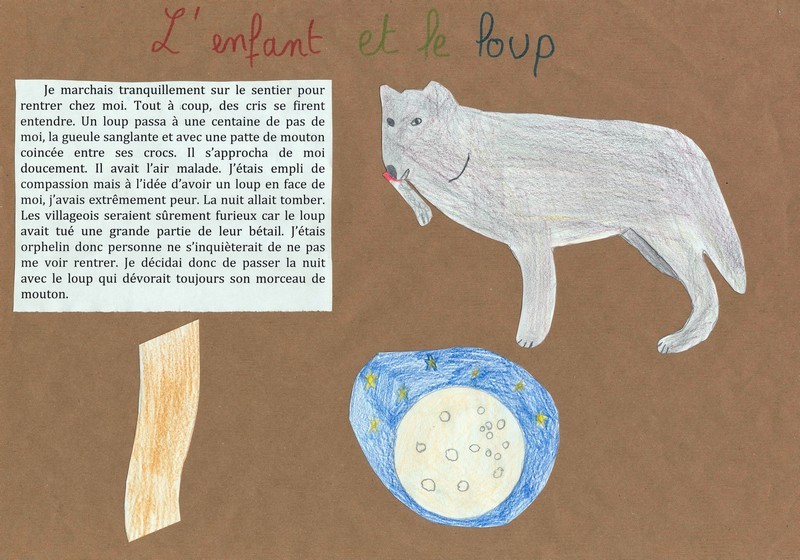 L'enfant et le loup
Je marchais tranquillement sur le sentier pour
rentrer chez moi. Tout à coup, des cris se firent
entendre. Un loup passa à une centaine de pas de
moi, la gueule sanglante et avec une patte de mouton
coincée entre ses crocs. Il s'approcha de moi
doucement. Il avait l'air malade. J'étais empli de
compassion mais à l'idée d'avoir un loup en face de
moi, j'avais extrêmement peur. La nuit allait tomber.
Les villageois seraient sûrement furieux car le loup
avait tué une grande partie de leur bétail. J'étais
orphelin donc personne ne s'inquièterait de ne pas
me voir rentrer. Je décidai donc de passer la nuit
avec le loup qui dévorait toujours son morceau de
mouton.